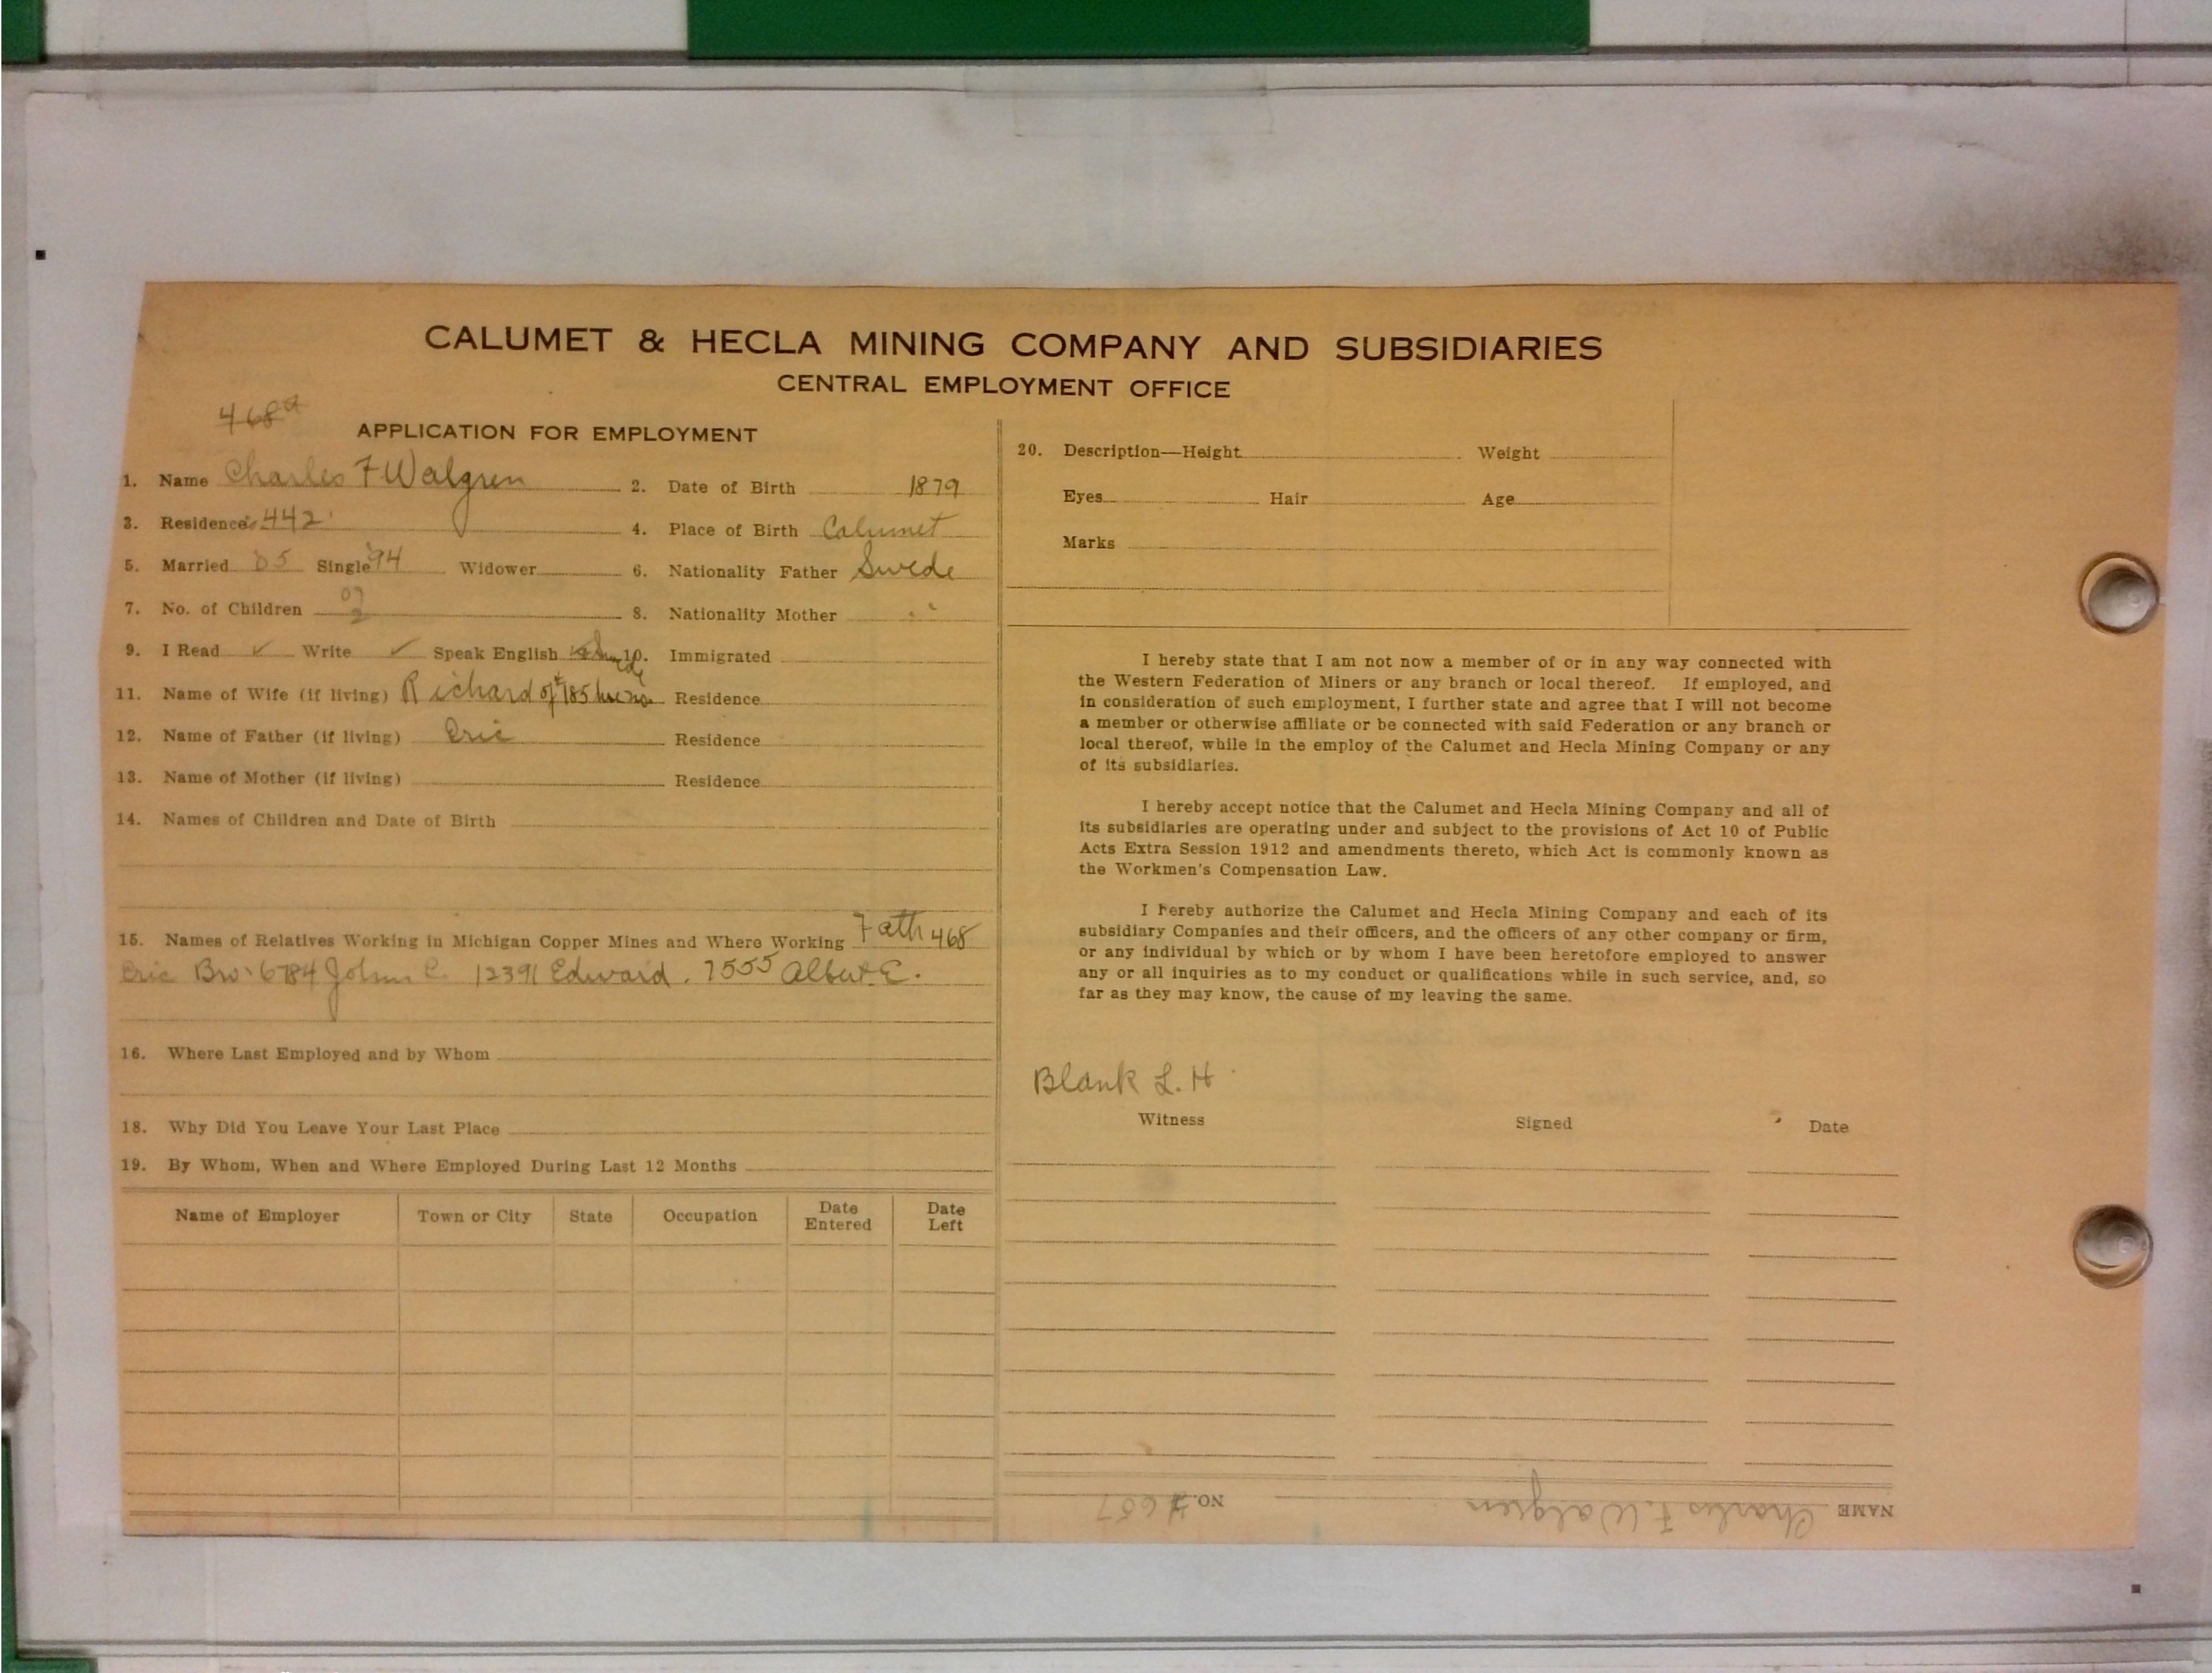 CALUMET & HECLA MINING COMPANY AND SUBSIDIARIES
CENTRAL EMPLOYMENT OFFICE
468
APPLICATION FOR EMPLOYMENT
1. Name Charles F Walgren 2. Date of Birth 1879
3. Residence 442 4. Place of Birth Calumet
5. Married 05 Single 94 Widower 6. Nationality Father Swede
7. No. of Children 8. Nationality Mother "
9. I Read ✓ Write ✓ Speak English 10. Immigrated
11. Name of Wife (if living) Richard of 785 Residence
12. Name of Father (if living) Eric Residence
13. Name of Mother (if living) Residence
14. Names of Children and Date of Birth
15. Names of Relatives Working in Michigan Copper Mines and Where Working Fath 468
Eric Bro: 6784 John E. 12391 Edward. 7555 Albert E.
16. Where Last Employed and by Whom
18. Why Did You Leave Your Last Place
19. By Whom, When and Where Employed During Last 12 Months
Name of Employer Town or City State Occupation Date Entered Date Left
20. Description—Height Weight
Eyes Hair Age
Marks
I hereby state that I am not now a member of or in any way connected with
the Western Federation of Miners or any branch or local thereof. If employed, and
in consideration of such employment, I further state and agree that I will not become
a member or otherwise affiliate or be connected with said Federation or any branch or
local thereof, while in the employ of the Calumet and Hecla Mining Company or any
of its subsidiaries.
I hereby accept notice that the Calumet and Hecla Mining Company and all of
its subsidiaries are operating under and subject to the provisions of Act 10 of Public
Acts Extra Session 1912 and amendments thereto, which Act is commonly known as
the Workmen's Compensation Law.
I hereby authorize the Calumet and Hecla Mining Company and each of its
subsidiary Companies and their officers, and the officers of any other company or firm,
or any individual by which or by whom I have been heretofore employed to answer
any or all inquiries as to my conduct or qualifications while in such service, and, so
far as they may know, the cause of my leaving the same.
Blank L. H
Witness Signed Date
NAME Charles F. Walgren NO.